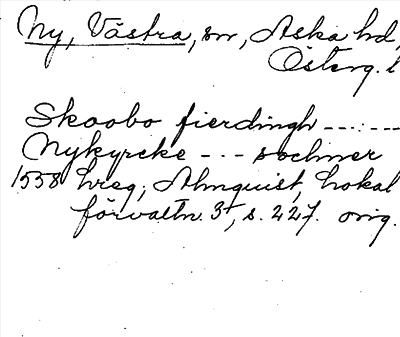 Ny, Västra, sn, Aska hd,
Österg. l
Skoobo fierdingh --- : ---
Nykyrcke --- sochner
1558 hreg; Almquist, Lokal
förvaltn. 3, s. 227. orig.